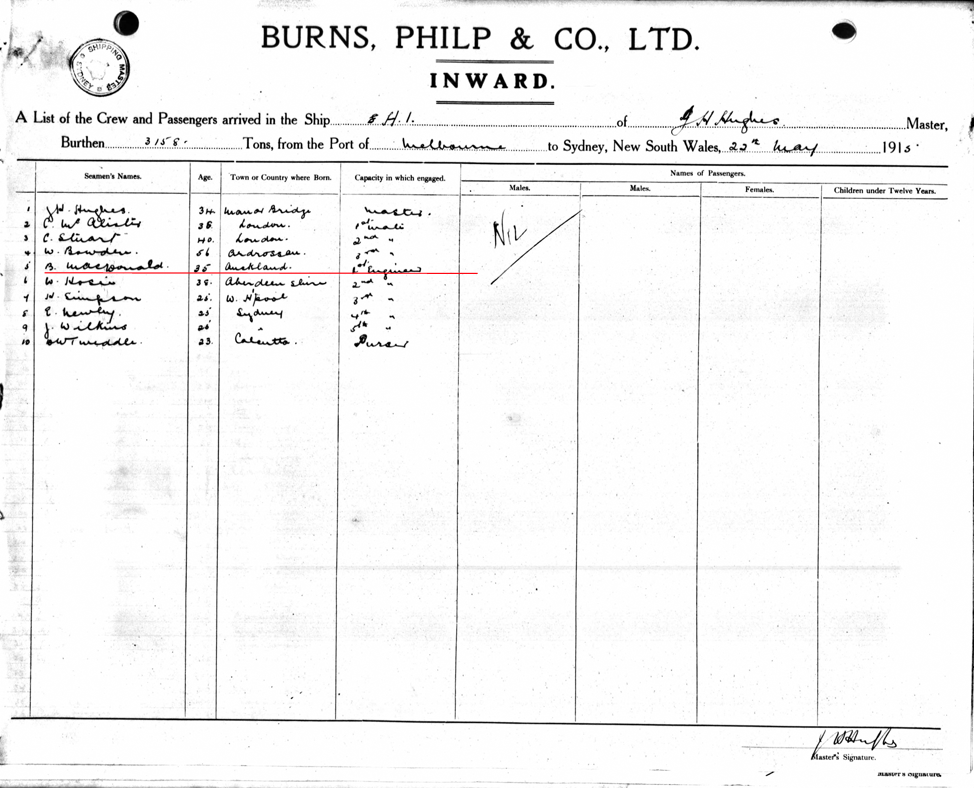 BURNS, PHILP & CO., LTD.
SHIPPING MASTER SYDNEY
INWARD.
A List of the Crew and Passengers arrived in the Ship of J H Hughes Master,
Burthen 3158 Tons, from the Port of Melbourne to Sydney, New South Wales, 22nd May 1915
Seamen's Names. Age. Town or Country where Born. Capacity in which engaged. Names of Passengers.
Males. Males. Females. Children under Twelve Years.
1 J H. Hughes. 34 Manor Bridge Master.
2 C. McAlister 38 London. 1st Mate
3 C. Stuart 40. London. 2nd "
4 W. Bowden. 56 Ardrossan. 3rd "
5 B. MacDonald. 35 Auckland. 1st Engineer
6 W. Hosie 38. Aberdeen Shire 2nd "
7 H. Simpson 25. W. H'pool 3rd "
8 E. Newby. 25 Sydney 4th "
9 J. Wilkins 26 " 5th "
10 Tweddle. 23. Calcutta. Purser
NIL
J H Hughes
Master's Signature.
Master's Signature.